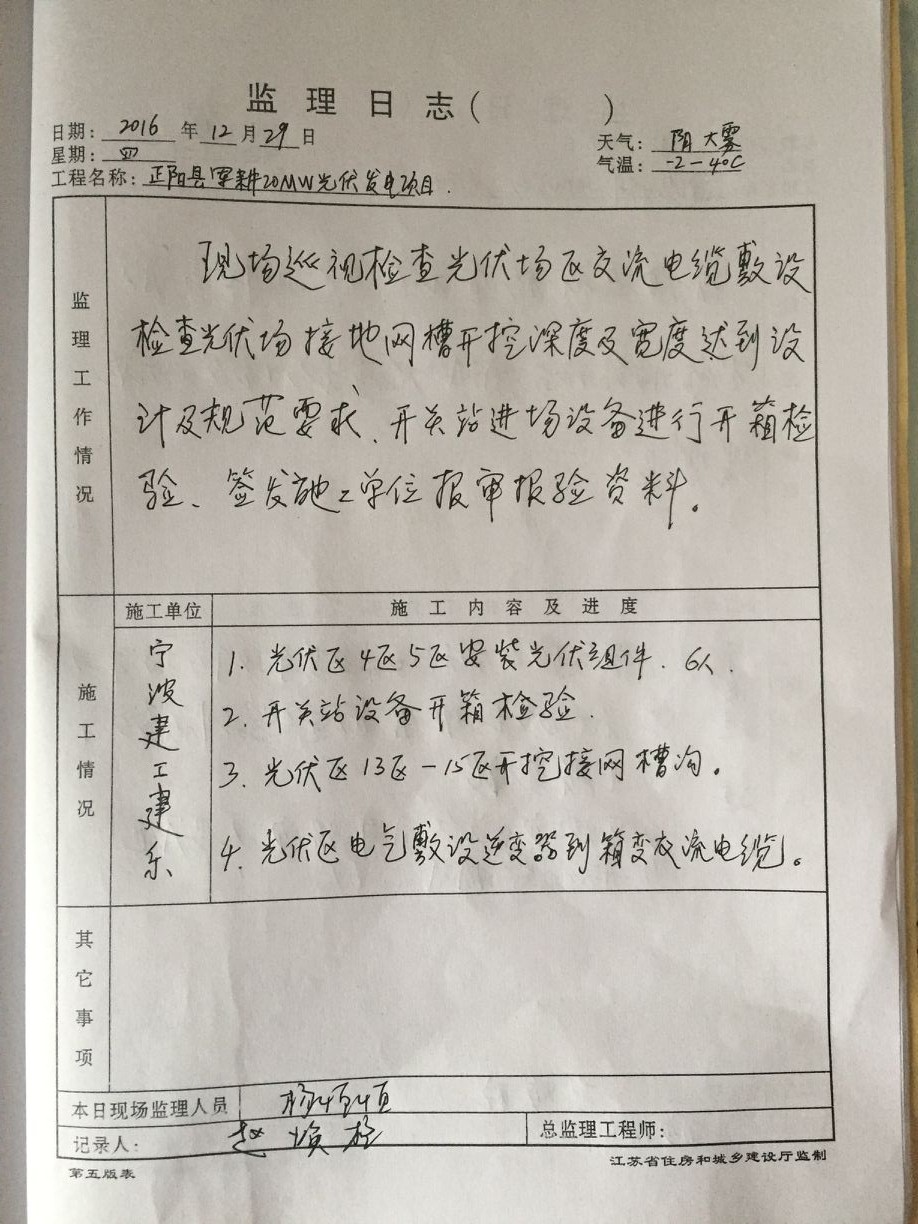 监理日志( )
日期: 2016 年 12 月 29 日
天气: 阴 大雾
星期: 四
气温: -2-4℃
工程名称: 正阳县军耕20MW光伏发电项目.
监理工作情况
现场巡视检查光伏场区交流电缆敷设
检查光伏场接地网槽开挖深度及宽度达到设
计及规范要求、开关站进场设备进行开箱检
验、签发施工单位报审报验资料。
施工情况
施工单位
施工内容及进度
宁波建工建乐
1. 光伏区4区5区安装光伏组件. 6人.
2. 开关站设备开箱检验.
3. 光伏区13区-15区开挖接网槽沟。
4. 光伏区电气敷设逆变器到箱变交流电缆。
其它事项
本日现场监理人员
记录人: 赵
总监理工程师:
第五版表
江苏省住房和城乡建设厅监制